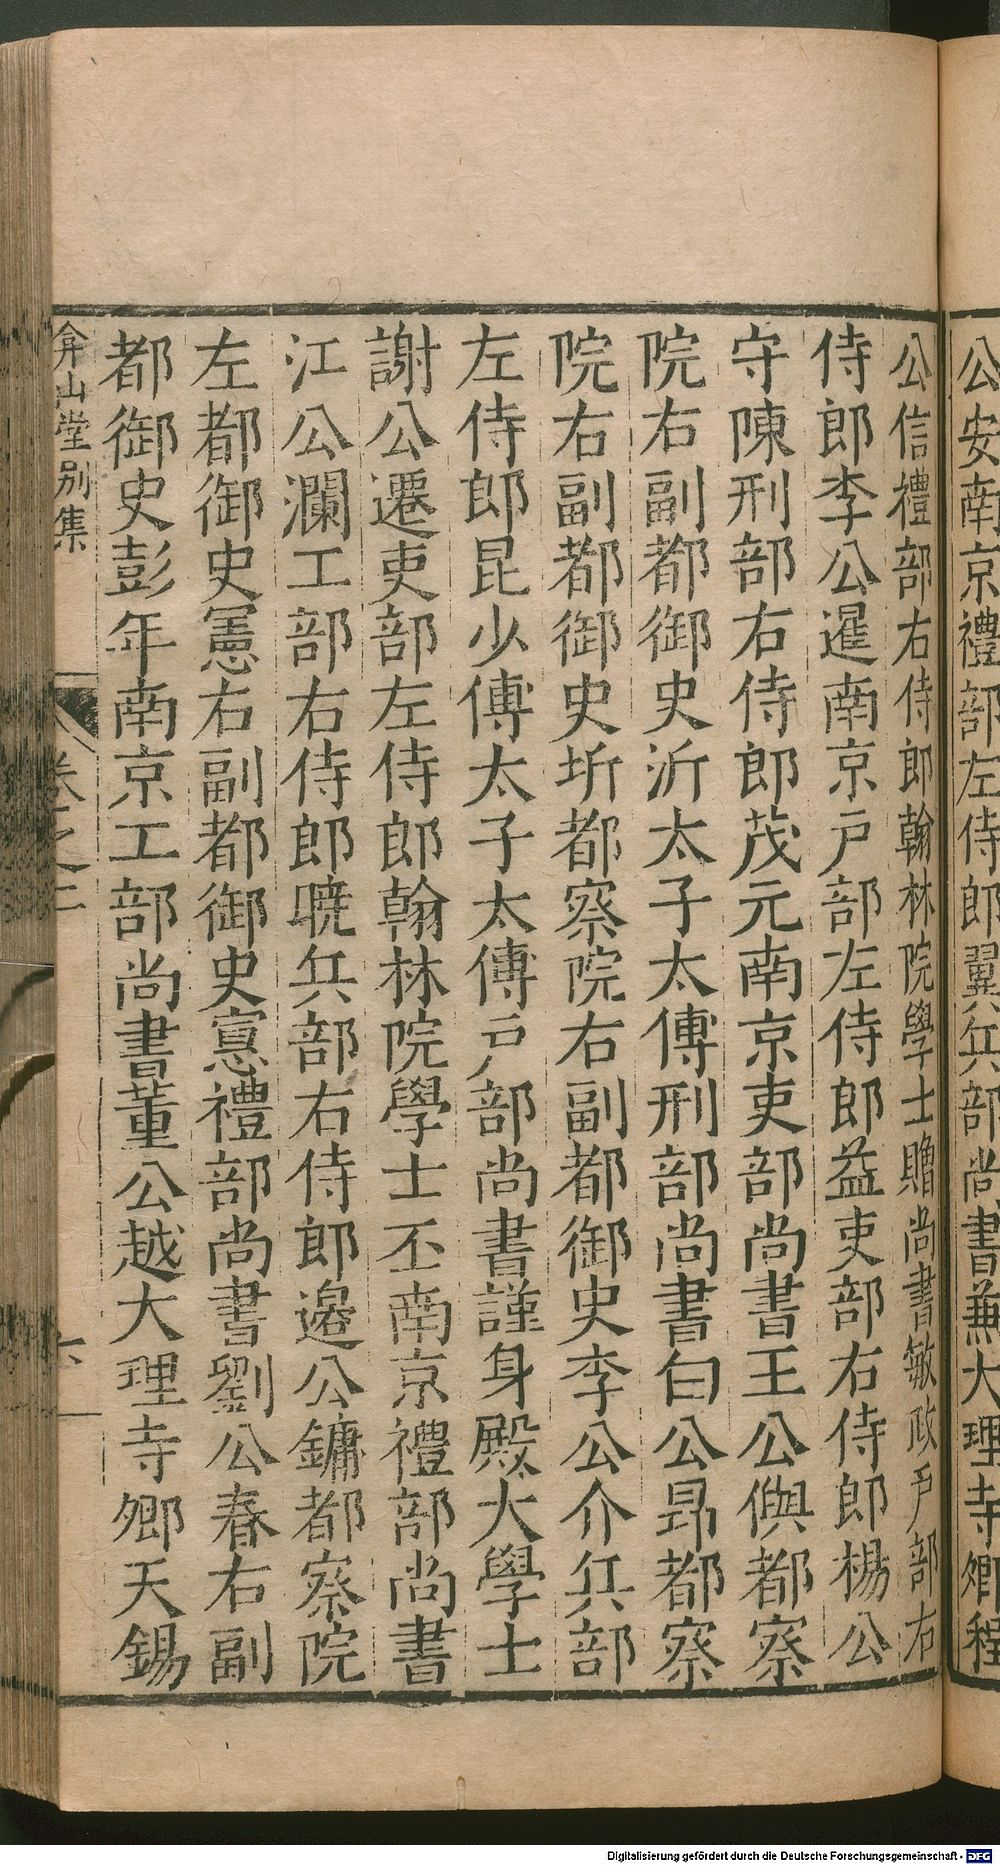 公安南京禮部左侍郎翼兵部尚書兼大理寺卿程
公信禮部右侍郎翰林院學士贈尚書敏政戶部右
侍郎李公暹南京戶部左侍郎益吏部右侍郎楊公
守陳刑部右侍郎茂元南京吏部尚書王公㒜都察
院右副都御史沂太子太傅刑部尚書白公昂都察
院右副都御史圻都察院右副都御史李公介兵部
左侍郎昆少傅太子太傅戶部尚書謹身殿大學士
謝公遷吏部左侍郎翰林院學士丕南京禮部尚書
江公瀾工部右侍郎曉兵部右侍郎邊公鏞都察院
左都御史憲右副都御史寧禮部尚書劉公春右副
都御史彭年南京工部尚書董公越大理寺卿天錫
弇山堂別集
卷之二
六
Digitalisierung gefördert durch die Deutsche Forschungsgemeinschaft - DFG